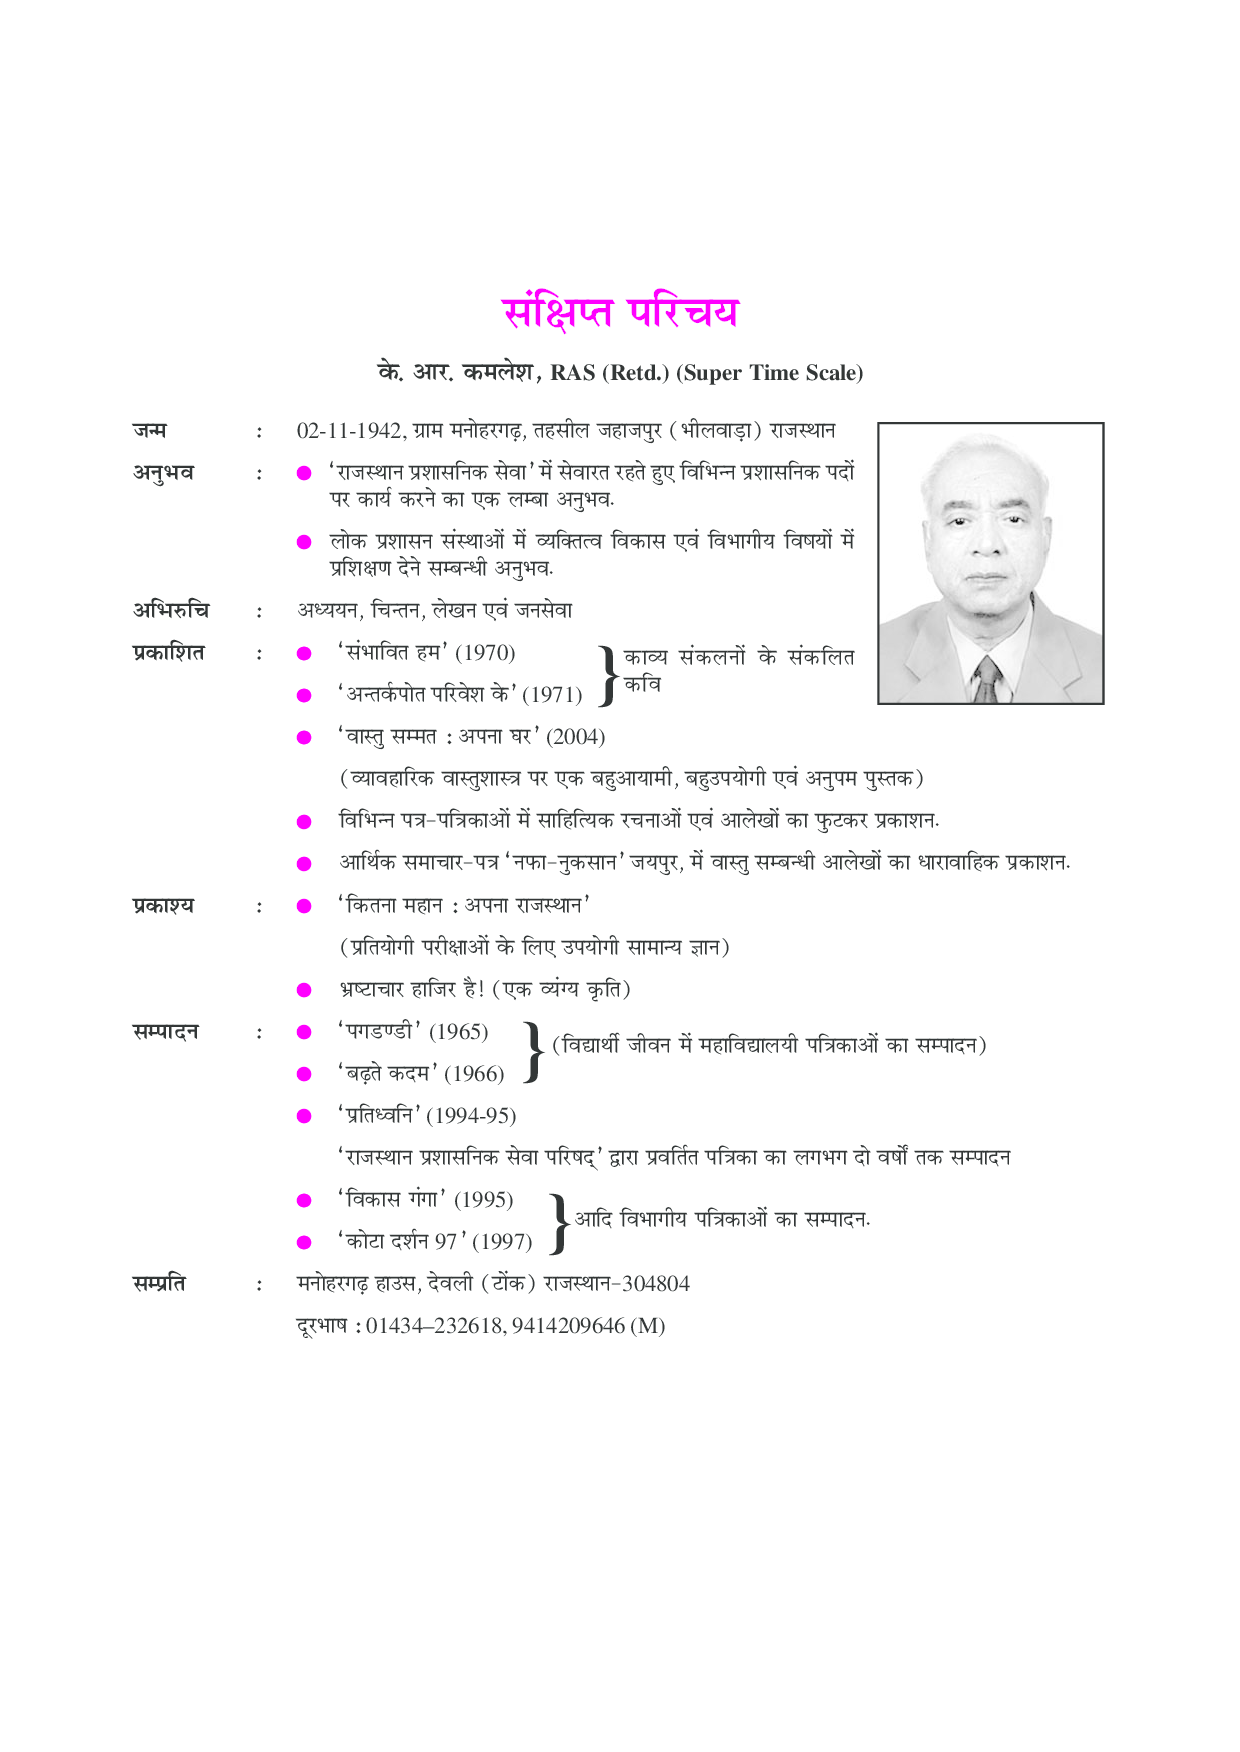 संक्षिप्त परिचय
के. आर. कमलेश, RAS (Retd.) (Super Time Scale)
जन्म : 02-11-1942, ग्राम मनोहरगढ़, तहसील जहाजपुर (भीलवाड़ा) राजस्थान
अनुभव : ● ‘राजस्थान प्रशासनिक सेवा’ में सेवारत रहते हुए विभिन्न प्रशासनिक पदों
पर कार्य करने का एक लम्बा अनुभव.
● लोक प्रशासन संस्थाओं में व्यक्तित्व विकास एवं विभागीय विषयों में
प्रशिक्षण देने सम्बन्धी अनुभव.
अभिरुचि : अध्ययन, चिन्तन, लेखन एवं जनसेवा
प्रकाशित : ● ‘संभावित हम’ (1970)
● ‘अन्तर्कपोत परिवेश के’ (1971)
} काव्य संकलनों के संकलित
कवि
● ‘वास्तु सम्मत : अपना घर’ (2004)
(व्यावहारिक वास्तुशास्त्र पर एक बहुआयामी, बहुउपयोगी एवं अनुपम पुस्तक)
● विभिन्न पत्र-पत्रिकाओं में साहित्यिक रचनाओं एवं आलेखों का फुटकर प्रकाशन.
● आर्थिक समाचार-पत्र ‘नफा-नुकसान’ जयपुर, में वास्तु सम्बन्धी आलेखों का धारावाहिक प्रकाशन.
प्रकाश्य : ● ‘कितना महान : अपना राजस्थान’
(प्रतियोगी परीक्षाओं के लिए उपयोगी सामान्य ज्ञान)
● भ्रष्टाचार हाजिर है! (एक व्यंग्य कृति)
सम्पादन : ● ‘पगडण्डी’ (1965)
● ‘बढ़ते कदम’ (1966)
} (विद्यार्थी जीवन में महाविद्यालयी पत्रिकाओं का सम्पादन)
● ‘प्रतिध्वनि’ (1994-95)
‘राजस्थान प्रशासनिक सेवा परिषद्’ द्वारा प्रवर्तित पत्रिका का लगभग दो वर्षों तक सम्पादन
● ‘विकास गंगा’ (1995)
● ‘कोटा दर्शन 97’ (1997)
} आदि विभागीय पत्रिकाओं का सम्पादन.
सम्प्रति : मनोहरगढ़ हाउस, देवली (टोंक) राजस्थान-304804
दूरभाष : 01434–232618, 9414209646 (M)